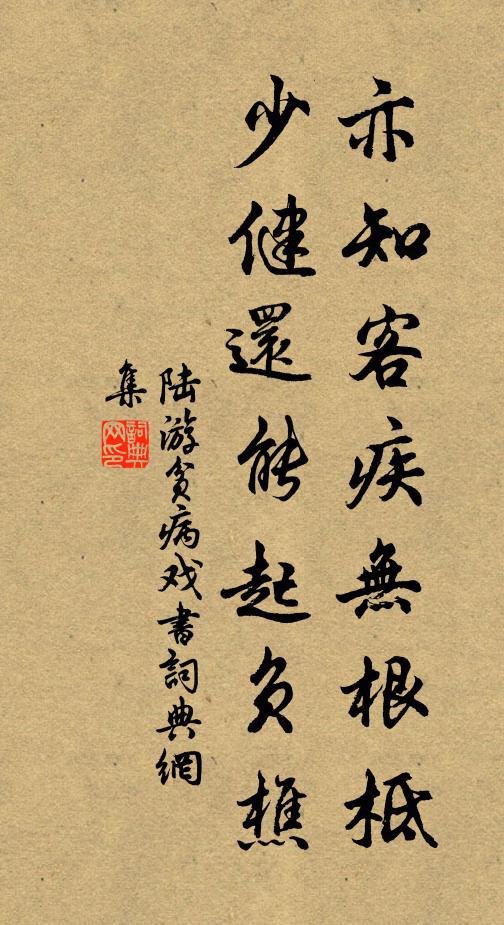 亦知客疾無根柢
少健還能起負樵
陆游貧病戏書詞典網
集
詞典网印